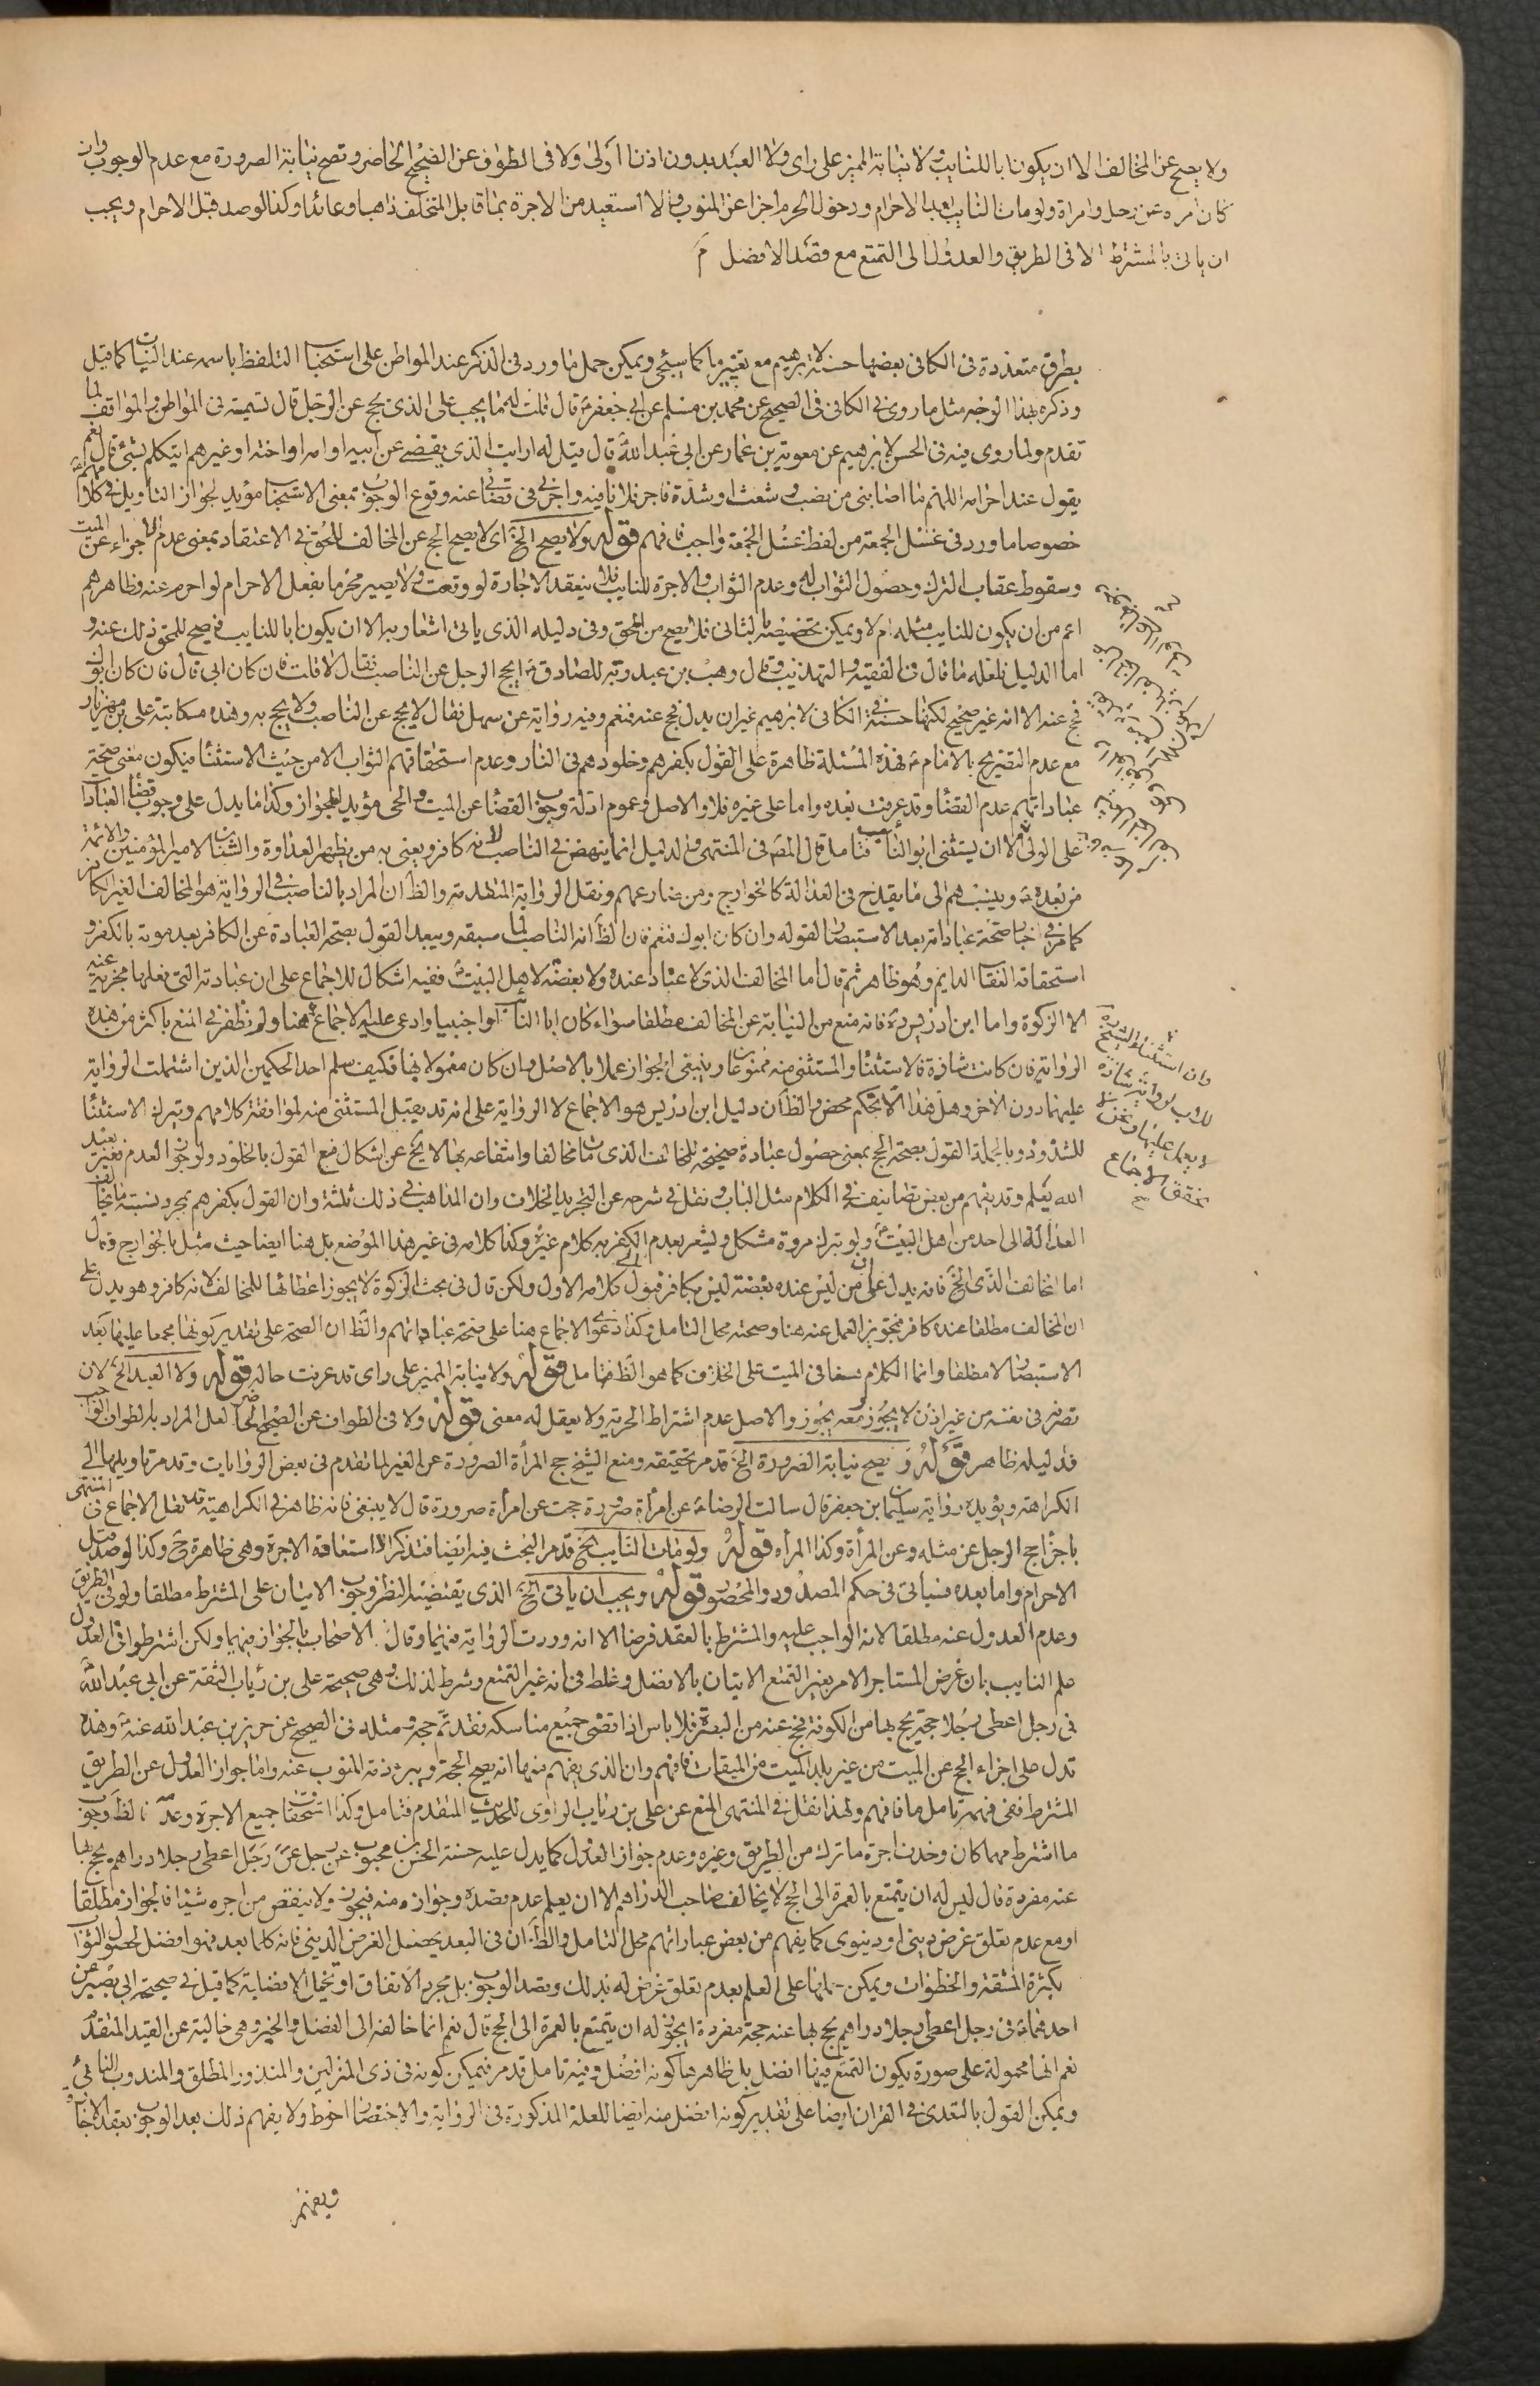 ولا يصح عن المخالف الا ان يكون ابا للنايب ولا نيابة المميز على راى ولا العبد بدون اذن المولى ولا فى الطواف عن الصحيح الحاضر وتصح نيابة الصرورة مع عدم الوجوب وان
كان امراة عن رجل وامراة ولو مات النايب بعد الاحرام ودخول الحرم اجزا عن المنوب والا استعيد من الاجرة بما قابل المتخلف ذاهبا وعائدا وكذا لو صد قبل الاحرام ويجب
ان ياتى بالمشترط الا فى الطريق والعدول الى التمتع مع قصد الافضل
بطرق متعددة فى الكافى بعضها حسنة لابرهيم مع تغيير ما كما سيجئ ويمكن حمل ما ورد فى الذكر عند المواطن على استحباب التلفظ باسمه عند النيات كما قيل
وذكره بهذا الوجه مثل ما روى فى الكافى فى الصحيح عن محمد بن مسلم عن ابى جعفر ع قال قلت له ما يجب على الذى يحج عن الرجل قال تسميته فى المواطن والمواقف لما
تقدم ولما روى فيه فى الحسن لابرهيم عن معوية بن عمار عن ابى عبد الله ع قال قيل له ارايت الذى يقضى عن ابيه او امه او اخته او غيرهم ايتكلم بشئ قال نعم
يقول عند احرامه اللهم ما اصابنى من نصب و شعث او شدة فاجر فلانا فيه واجرنى فى قضائى عنه وقوع الوجوب بمعنى الاستحباب مؤيد لجواز التاويل فى كلامهم
خصوصا ما ورد فى غسل الجمعة من لفظ غسل الجمعة واجب فافهم قوله ولا يصح الخ اى لا يصح الحج عن المخالف للحق فى الاعتقاد بمعنى عدم الاجزاء عن الميت
وسقوط عقاب الترك وحصول الثواب له وعدم الثواب والاجرة للنايب فلا ينعقد الاجارة لو وقعت ولا يصير محرما بفعل الاحرام لو احرم عنه وظاهرهم
اعم من ان يكون للنايب مثله ام لا ويمكن تخصيصه بالثانى فلا يصح من المحق وفى دليله الذى ياتى اشعار به الا ان يكون ابا للنايب فيصح للمحق ذلك عنه و
اما الدليل فلعله ما قال فى الفقيه والتهذيب وقال وهب بن عبد ربه للصادق ع ايحج الرجل عن الناصب فقال لا قلت فان كان ابى قال فان كان ابوك
فحج عنه الا انه غير صحيح لكنها حسنة فى الكافى لابرهيم غير ان بدل فحج عنه فنعم وفيه رواية عن سهل فقال لا يحج عن الناصب ولا يحج به وهذه مكاتبة على بن مهزيار
مع عدم التصريح بالامام ع فهذه المسئلة ظاهرة على القول بكفرهم وخلودهم فى النار وعدم استحقاقهم الثواب الا من حيث الاستثنا فيكون معنى صحة
عباداتهم عدم القضا وقد عرفت بعده واما على غيره فلا والاصل وعموم ادلة وجوب القضا عن الميت والحى مؤيد للجواز وكذا ما يدل على وجوب قضا العبادات
على الولى الا ان يستثنى ابو الناصب فتامل قال المص فى المنتهى والدليل انما ينهض فى الناصب لانه كافر ويعنى به من يظهر العداوة والشنان لامير المؤمنين والائمة
من بعده ع وينسبهم الى ما يقدح فى العدالة كالخوارج ومن ضارعهم ونقل الرواية المتقدمة والظ ان المراد بالناصب فى الرواية هو المخالف الغير الكافر
كما مر فى اخبار صحة عباداته بعد الاستبصار لقوله وان كان ابوك فنعم فان الظ انه الناصب لما سبقه ويبعد القول بصحة العبادة عن الكافر بعد موته بالكفر و
استحقاقه العقاب الدايم وهو ظاهر ثم قال اما المخالف الذى لا عناد عنده ولا بغضة لاهل البيت ع ففيه اشكال للاجماع على ان عبادته التى فعلها مجزية عنه
الا الزكوة واما ابن ادريس ره فانه منع من النيابة عن المخالف مطلقا سواء كان ابا النايب او اجنبيا وادعى عليه الاجماع هنا ولم نظفر فى المنع باكثر من هذه
الرواية فان كانت شاذة فالاستثنا والمستثنى منه ممنوعان وينبغى الجواز عملا بالاصل وان كان معمولا بها فكيف سلم احد الحكمين الذين اشتملت الرواية
عليهما دون الاخر وهل هذا الا تحكم محض والظ ان دليل ابن ادريس هو الاجماع لا الرواية على انه قد يقبل المستثنى منه لموافقة كلامهم ويترك الاستثنا
للشذوذ وبالجملة القول بصحة الحج بمعنى حصول عبادة صحيحة للمخالف الذى مات مخالفا وانتفاعه بها لا يخ عن اشكال مع القول بالخلود ولو نوى العدم فغير بعيد
الله يعلم وقد يفهم من بعض تصانيف فى الكلام مثل الباب ونقل فى شرحه عن التجريد الخلاف وان المذاهب فى ذلك ثلثة وان القول بكفرهم بمجرد نسبة ما يخالف
العدالة الى احد من اهل البيت ع ولو بترك مروة مشكل ويشعر بعدم الكفر به كلام غيره وكذا كلامه فى غير هذا الموضع بل هنا ايضا حيث مثل بالخوارج وقال
اما المخالف الذى الخ فانه يدل على ان من ليس عنده بغضة ليس بكافر فيؤل كلامه الاول ولكن قال فى بحث الزكوة لا يجوز اعطائها للمخالف لانه كافر وهو يدل على
ان المخالف مطلقا عنده كافر فتجويز العمل عنه هنا وصحته محل التامل وكذا دعوى الاجماع هنا على صحة عباداتهم والظ ان الصحة على تقدير كونها مجمعا عليها بعد
الاستبصار لا مطلقا وانما الكلام معنا فى الميت على الخلاف كما هو الظ فتامل قوله ولا نيابة المميز على راى قد عرفت حاله قوله ولا العبد الخ لان
تصرفه فى نفسه من غير اذن لا يجوز ومعه يجوز والاصل عدم اشتراط الحرية ولا يعقل له معنى قوله ولا فى الطواف عن الصحيح الحاضر لعل المراد بالطواف الواجب
فدليله ظاهر قوله و يصح نيابة الصرورة الخ قد مر تحقيقه ومنع الشيخ حج المرأة الصرورة عن الغير لما تقدم فى بعض الروايات وقد مر تاويلها الى
الكراهة ويؤيده رواية سليمان بن جعفر قال سالت الرضا ع عن امرأة صرورة حجت عن امرأة صرورة قال لا ينبغى فانه ظاهر فى الكراهية قد نقل الاجماع فى المنتهى
باجزا حج الرجل عن مثله وعن المرأة وكذا المرأة قوله ولو مات النايب الخ قد مر البحث فيه ايضا فتذكر واستعادة الاجرة وهى ظاهرة ح وكذا لو صد قبل
الاحرام واما بعده فسياتى فى حكم المصدود والمحصور قوله ويجب ان ياتى الخ الذى يقتضيه النظر وجوب الاتيان على المشترط مطلقا ولو فى الطريق
وعدم العدول عنه مطلقا لانه الواجب عليه والمشترط بالعقد فرضا الا انه وردت الرواية فيهما وقال الاصحاب بالجواز فيهما ولكن اشترطوا فى العدول
علم النايب بان غرض المستاجر الامر بغير التمتع الاتيان بالافضل وغلط فى انه غير التمتع وشرط لذلك وهى صحيحة على بن رياب الثقة عن ابى عبد الله ع
فى رجل اعطى رجلا حجة يحج بها من الكوفة فحج عنه من البصرة فلا باس اذا قضى جميع مناسكه فقد تم حجه ومثله فى الصحيح عن حريز بن عبد الله عنه ع وهذه
تدل على اجزاء الحج عن الميت من غير بلد الميت من الميقات فافهم وان الذى يفهم منها انه يصح الحجة ويبرء ذمة المنوب عنه واما جواز العدول عن الطريق
المشترط ففى فهمه تامل ما فافهم ولهذا نقل فى المنتهى المنع عن على بن رياب الراوى للحديث المتقدم فتامل وكذا استحقاق جميع الاجرة وعد فالظ وجوب
ما اشترط مهما كان وحذف اجرة ما ترك من الطريق وغيره وعدم جواز العدول كما يدل عليه حسنة الحسن بن محبوب عن رجل عن رجل اعطى رجلا دراهم يحج بها
عنه مفردة قال ليس له ان يتمتع بالعمرة الى الحج لا يخالف صاحب الدراهم الا ان يعلم عدم قصده وجوازه منه فيجوز ولا ينقص من اجره شيئا فالجواز مطلقا
او مع عدم تعلق غرض دينى او دنيوى كما يفهم من بعض عباراتهم محل التامل والظ ان فى البعد يحصل الغرض الدينى فانه كلما بعد فهو افضل لحصول الثواب
بكثرة المشقة والخطوات ويمكن حملها على العلم بعدم تعلق غرض له بذلك وقصد الوجوب بل مجرد الاتفاق او تخيل الافضاية كما قيل فى صحيحة ابى بصير عن
احدهما ع فى رجل اعطى رجلا دراهم يحج بها عنه حجة مفردة ايجوز له ان يتمتع بالعمرة الى الحج قال نعم انما خالفه الى الفضل والخير وهى خالية عن القيد المتقدم
نعم انها محمولة على صورة يكون التمتع فيها افضل بل ظاهرها كونه افضل وفيه تامل قد مر فيمكن كونه فى ذى المنزلين والمنذور المطلق والمندوب
ويمكن القول بالتعدى فى القران ايضا على تقدير كونه افضل منه ايضا للعلة المذكورة فى الرواية والاختصار احوط ولا يفهم ذلك بعد الوجوب بعقد الاجارة
وان استثناء الشيخ
للاب لرواية شاذة
لا يعمل عليها
تحقق الاجماع